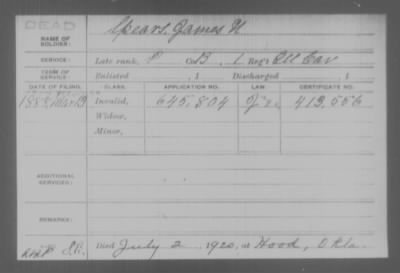 DEAD
NAME OF SOLDIER: Spears, James H
SERVICE: Late rank, P Co. B, 1 Reg't Cav
TERM OF SERVICE: Enlisted , 1 Discharged , 1
DATE OF FILING. CLASS. APPLICATION NO. LAW CERTIFICATE NO.
1888, Mar 19 Invalid, 645,804 413,556
Widow,
Minor,
ADDITIONAL SERVICES:
REMARKS:
Died July 2, 1920, at Hood, Okla.